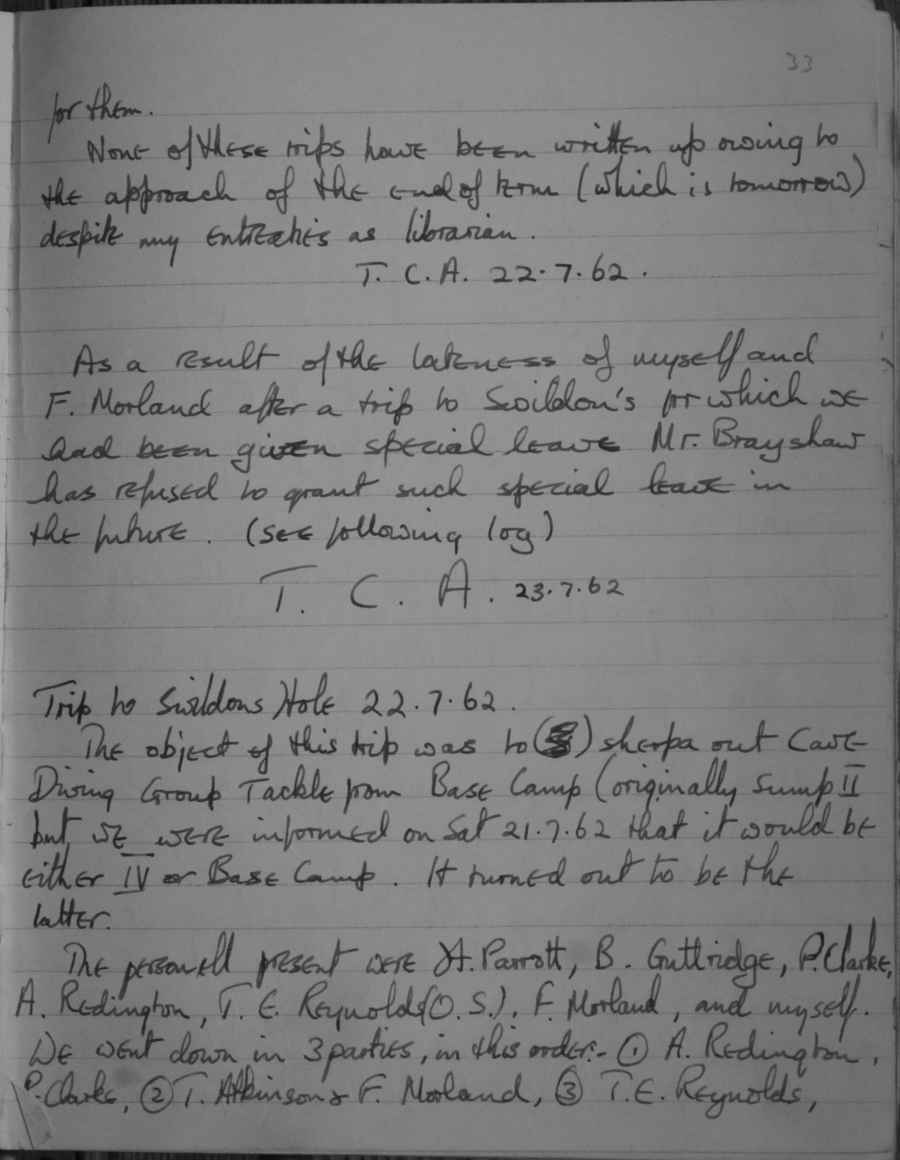 33
for them.
None of these trips have been written up owing to
the approach of the end of term (which is tomorrow)
despite my entreaties as librarian.
T. C. A. 22.7.62.
As a result of the lateness of myself and
F. Morland after a trip to Swildon's for which we
had been given special leave Mr. Brayshaw
has refused to grant such special leave in
the future. (see following log)
T. C. A. 23.7.62
Trip to Swildons Hole 22.7.62.
The object of this trip was to ( ) sherpa out Cave
Diving Group Tackle from Base Camp (originally Sump II
but we were informed on Sat 21.7.62 that it would be
either IV or Base Camp. It turned out to be the
latter.
The personell present were H. Parrott, B. Guttridge, P. Clarke,
A. Redington, T. E. Reynolds (O.S.), F. Morland, and myself.
We went down in 3 parties, in this order:- ① A. Redington,
P. Clarke, ② T. Atkinson & F. Morland, ③ T. E. Reynolds,